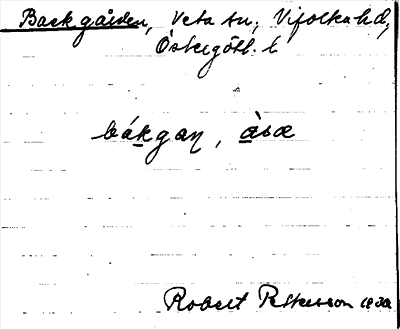 Backgården, Veta sn, Vifolka hd,
Östergötl. l
bákgan, àsa
Robert Pettersson 1930